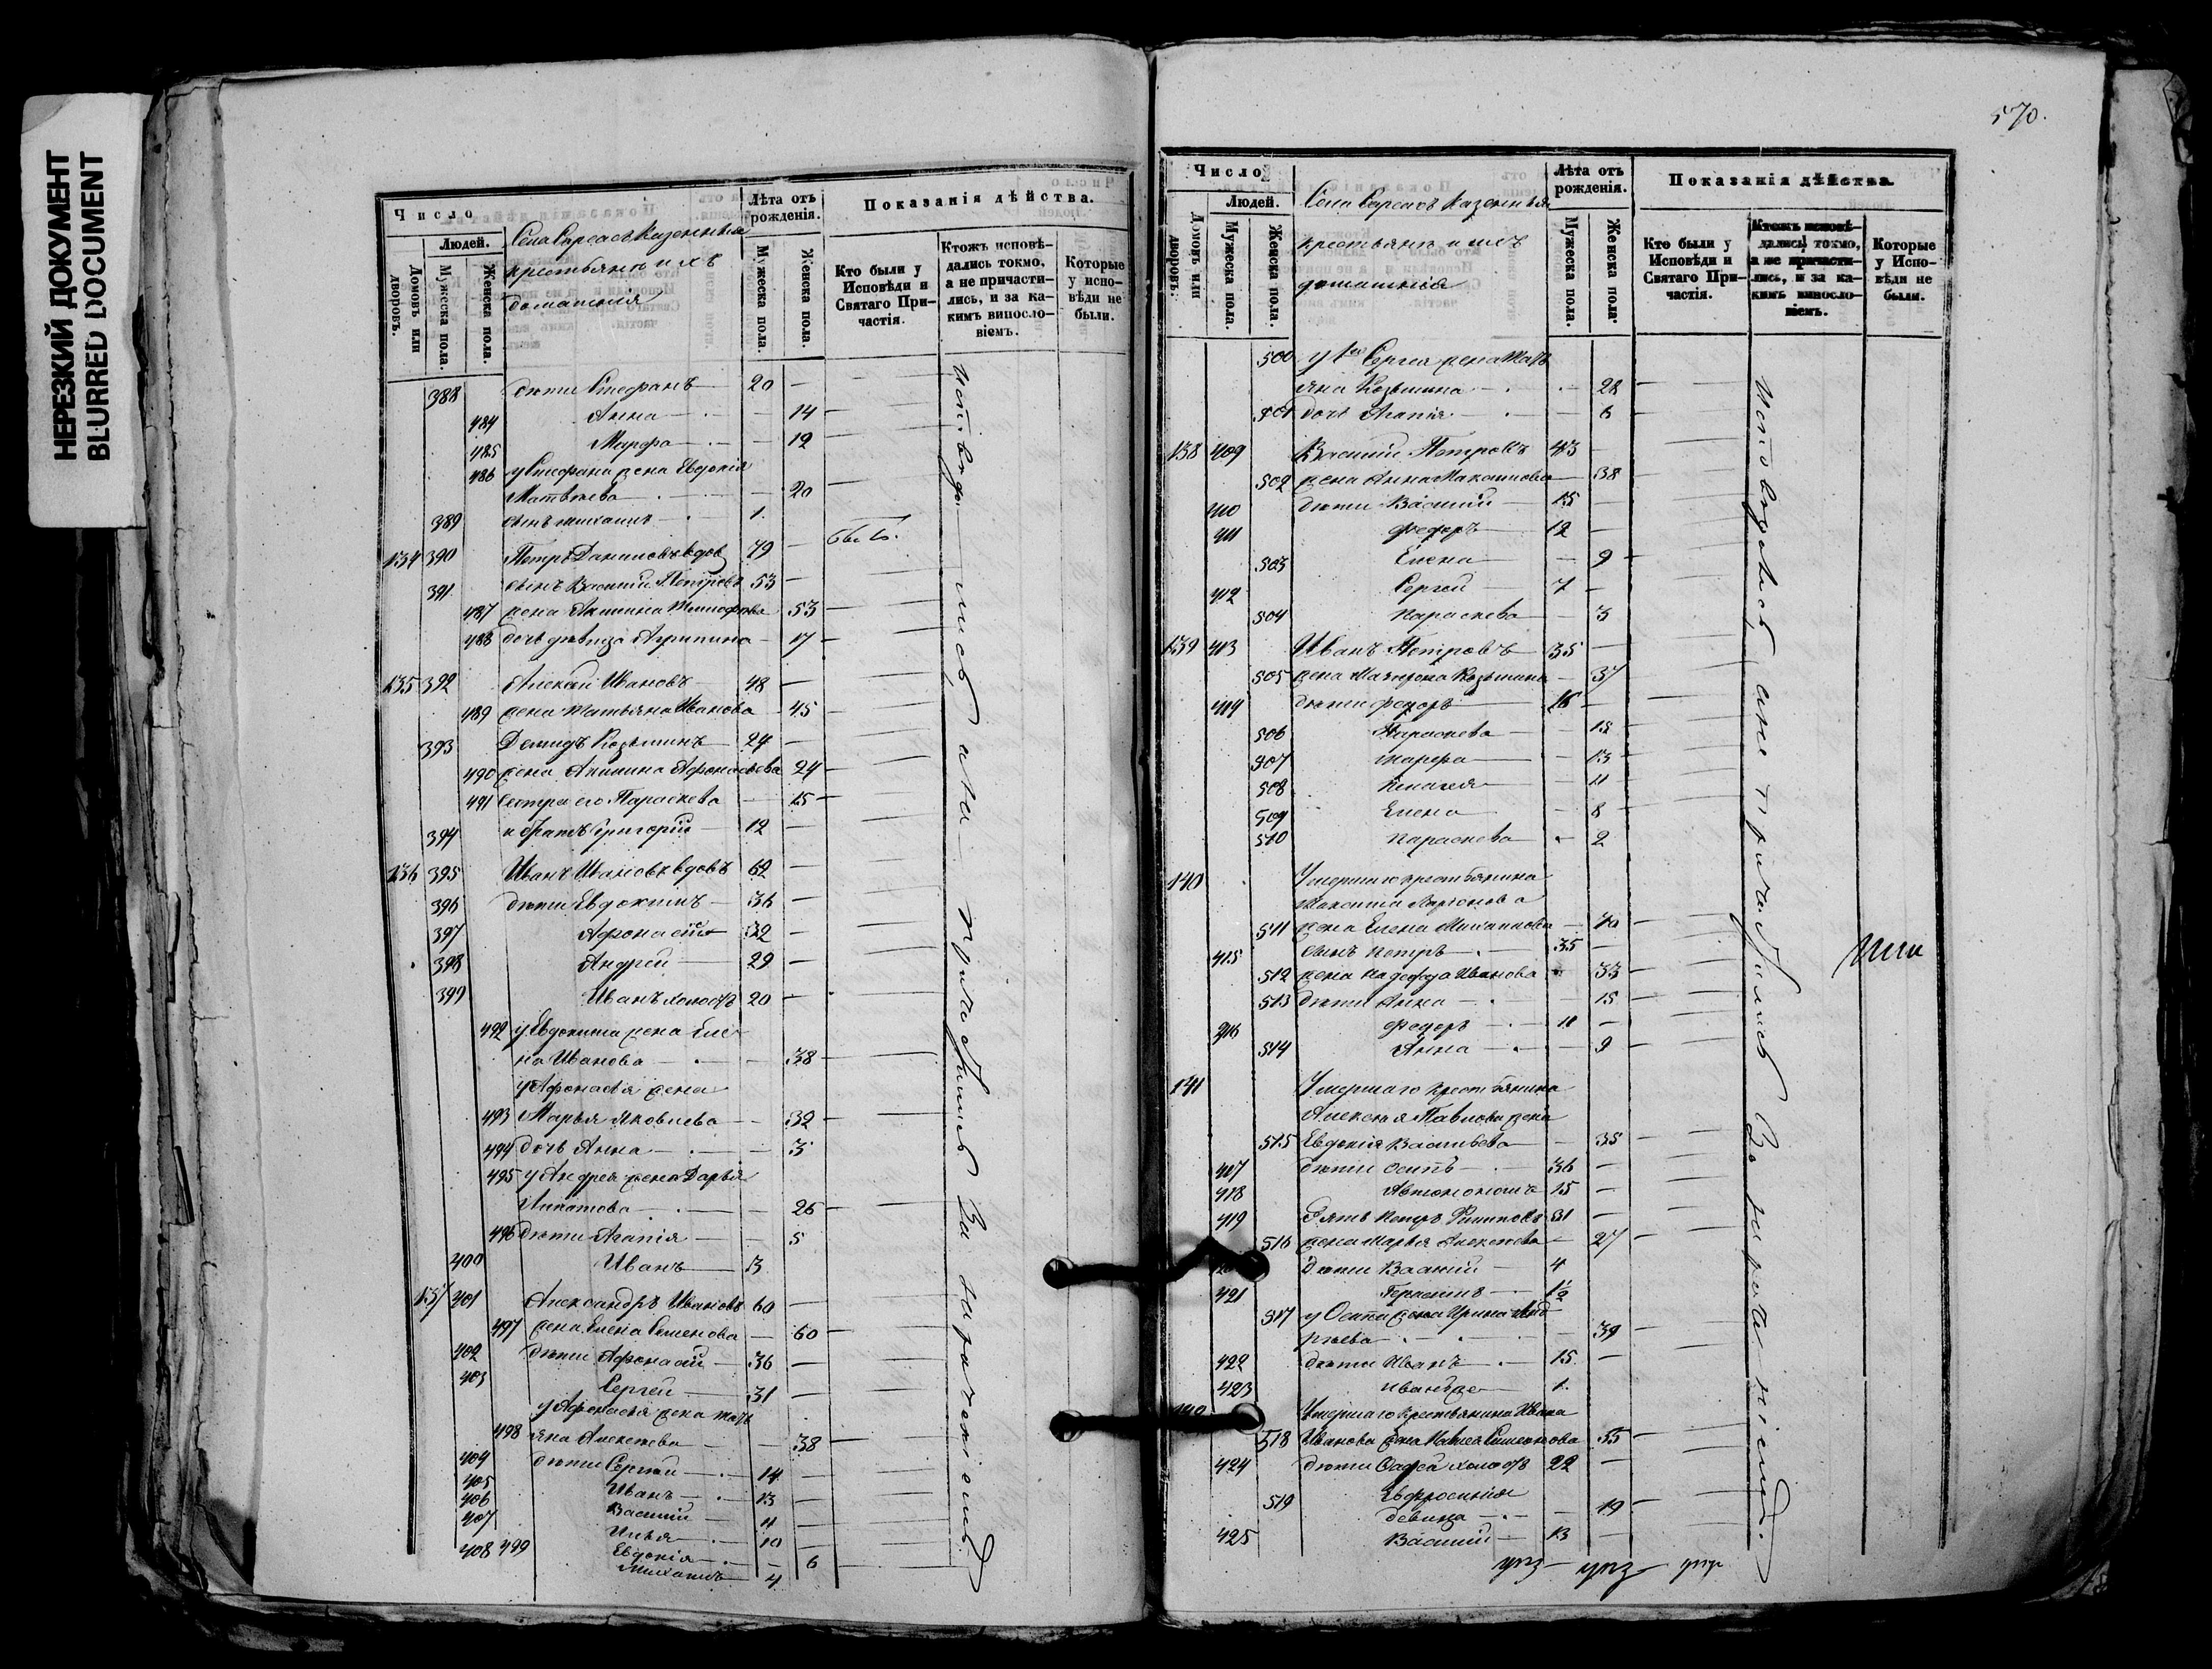 НЕРЕЗКИЙ ДОКУМЕНТ
BLURRED DOCUMENT
Число
Людей.
Домовъ или дворовъ.
Мужеска пола.
Женска пола.
Села Казенныя
крестьяне и ихъ
домашнія
Лѣта отъ рожденія.
Мужеска пола.
Женска пола.
Показанія дѣйства.
Кто были у Исповѣди и Святаго Причастія.
Ктожъ исповѣдались токмо, а не причастились, и за какимъ винословіемъ.
Которые у исповѣди не были.
388 дѣти Стефанъ 20
484 Анна 14
485 Марфа 12
486 у Стефана жена Евдокія
Матвѣева 20
389 сынъ Михаилъ 1
134 390 Петръ Даниловъ вдовъ 79 бывъ.
391 сынъ Василій Петровъ 53
487 жена Акилина 53
488 дочь дѣвица Агрипина 17
135 392 Алексѣй Ивановъ 48
489 жена Татьяна Иванова 45
393 Демидъ Козьминъ 24
490 жена Акилина Афонасьева 24
491 Сестра его Параскева 15
394 и братъ Григорій 12
136 395 Иванъ Ивановъ вдовъ 62
396 дѣти Евдокимъ 36
397 Афонасій 32
398 Андрей 29
399 Иванъ холостъ 20
492 у Евдокима жена Еле-
на Иванова 38
у Афонасія жена
493 Марья Яковлева 32
494 дочь Анна 3
495 у Андрея жена Дарья
Ипатова 26
496 дѣти Агапія 5
400 Иванъ 3
137 401 Александръ Ивановъ 60
497 жена Елена Семенова 60
402 дѣти Афонасій 36
403 Сергей 31
у Афонасія жена Тать-
498 яна Алексѣева 38
404 дѣти Сергей 14
405 Иванъ 13
406 Василій 11
407 Илья 10
499 Евдокія 6
408 Михаилъ 4
исповѣдались а не причастились за нерачениемъ
570.
Число
Людей.
Домовъ или дворовъ.
Мужеска пола.
Женска пола.
Села Казенныя
крестьяне и ихъ
домашнія
Лѣта отъ рожденія.
Мужеска пола.
Женска пола.
Показанія дѣйства.
Кто были у Исповѣди и Святаго Причастія.
Ктожъ исповѣдались токмо, а не причастились, и за какимъ винословіемъ.
Которые у Исповѣди не были.
500 у Сергея жена Тать-
яна Козьмина 28
501 дочь Агапія 6
138 409 Василій Петровъ 43
502 жена Анна Максимова 38
410 дѣти Василій 15
411 Федоръ 12
503 Елена 9
412 Сергей 7
504 Параскева 3
139 413 Иванъ Петровъ 35
505 жена Матрона Козьмина 37
414 дѣти Федоръ 16
506 Параскева 15
507 Марфа 13
508 11
509 Елена 8
510 Параскева 2
140 Умершаго крестьянина
511 жена Елена Михаилова 70
415 сынъ Петръ 35
512 жена Надежда Иванова 33
513 дѣти Анна 15
416 Федоръ 11
514 Анна 9
141 Умершаго крестьянина
Алексея Павлова жена
515 Евдокія Васильева 55
417 дѣти Осипъ 36
418 Автономъ 15
419 Зять Петръ Филиповъ 31
516 жена Марья Алексѣева 27
дѣти Василій 4
421 Герасимъ 1½
517 у Осипа жена Ирина Анд-
рѣева 39
422 дѣти Иванъ 15
423 Иванъ же 1
Умершаго крестьянина Ивана
518 Иванова жена Семенова 55
424 дѣти холостъ 22
519 Евфросинія
девица 19
425 Василій 13
исповѣдались а не причастились За нерачениемъ.